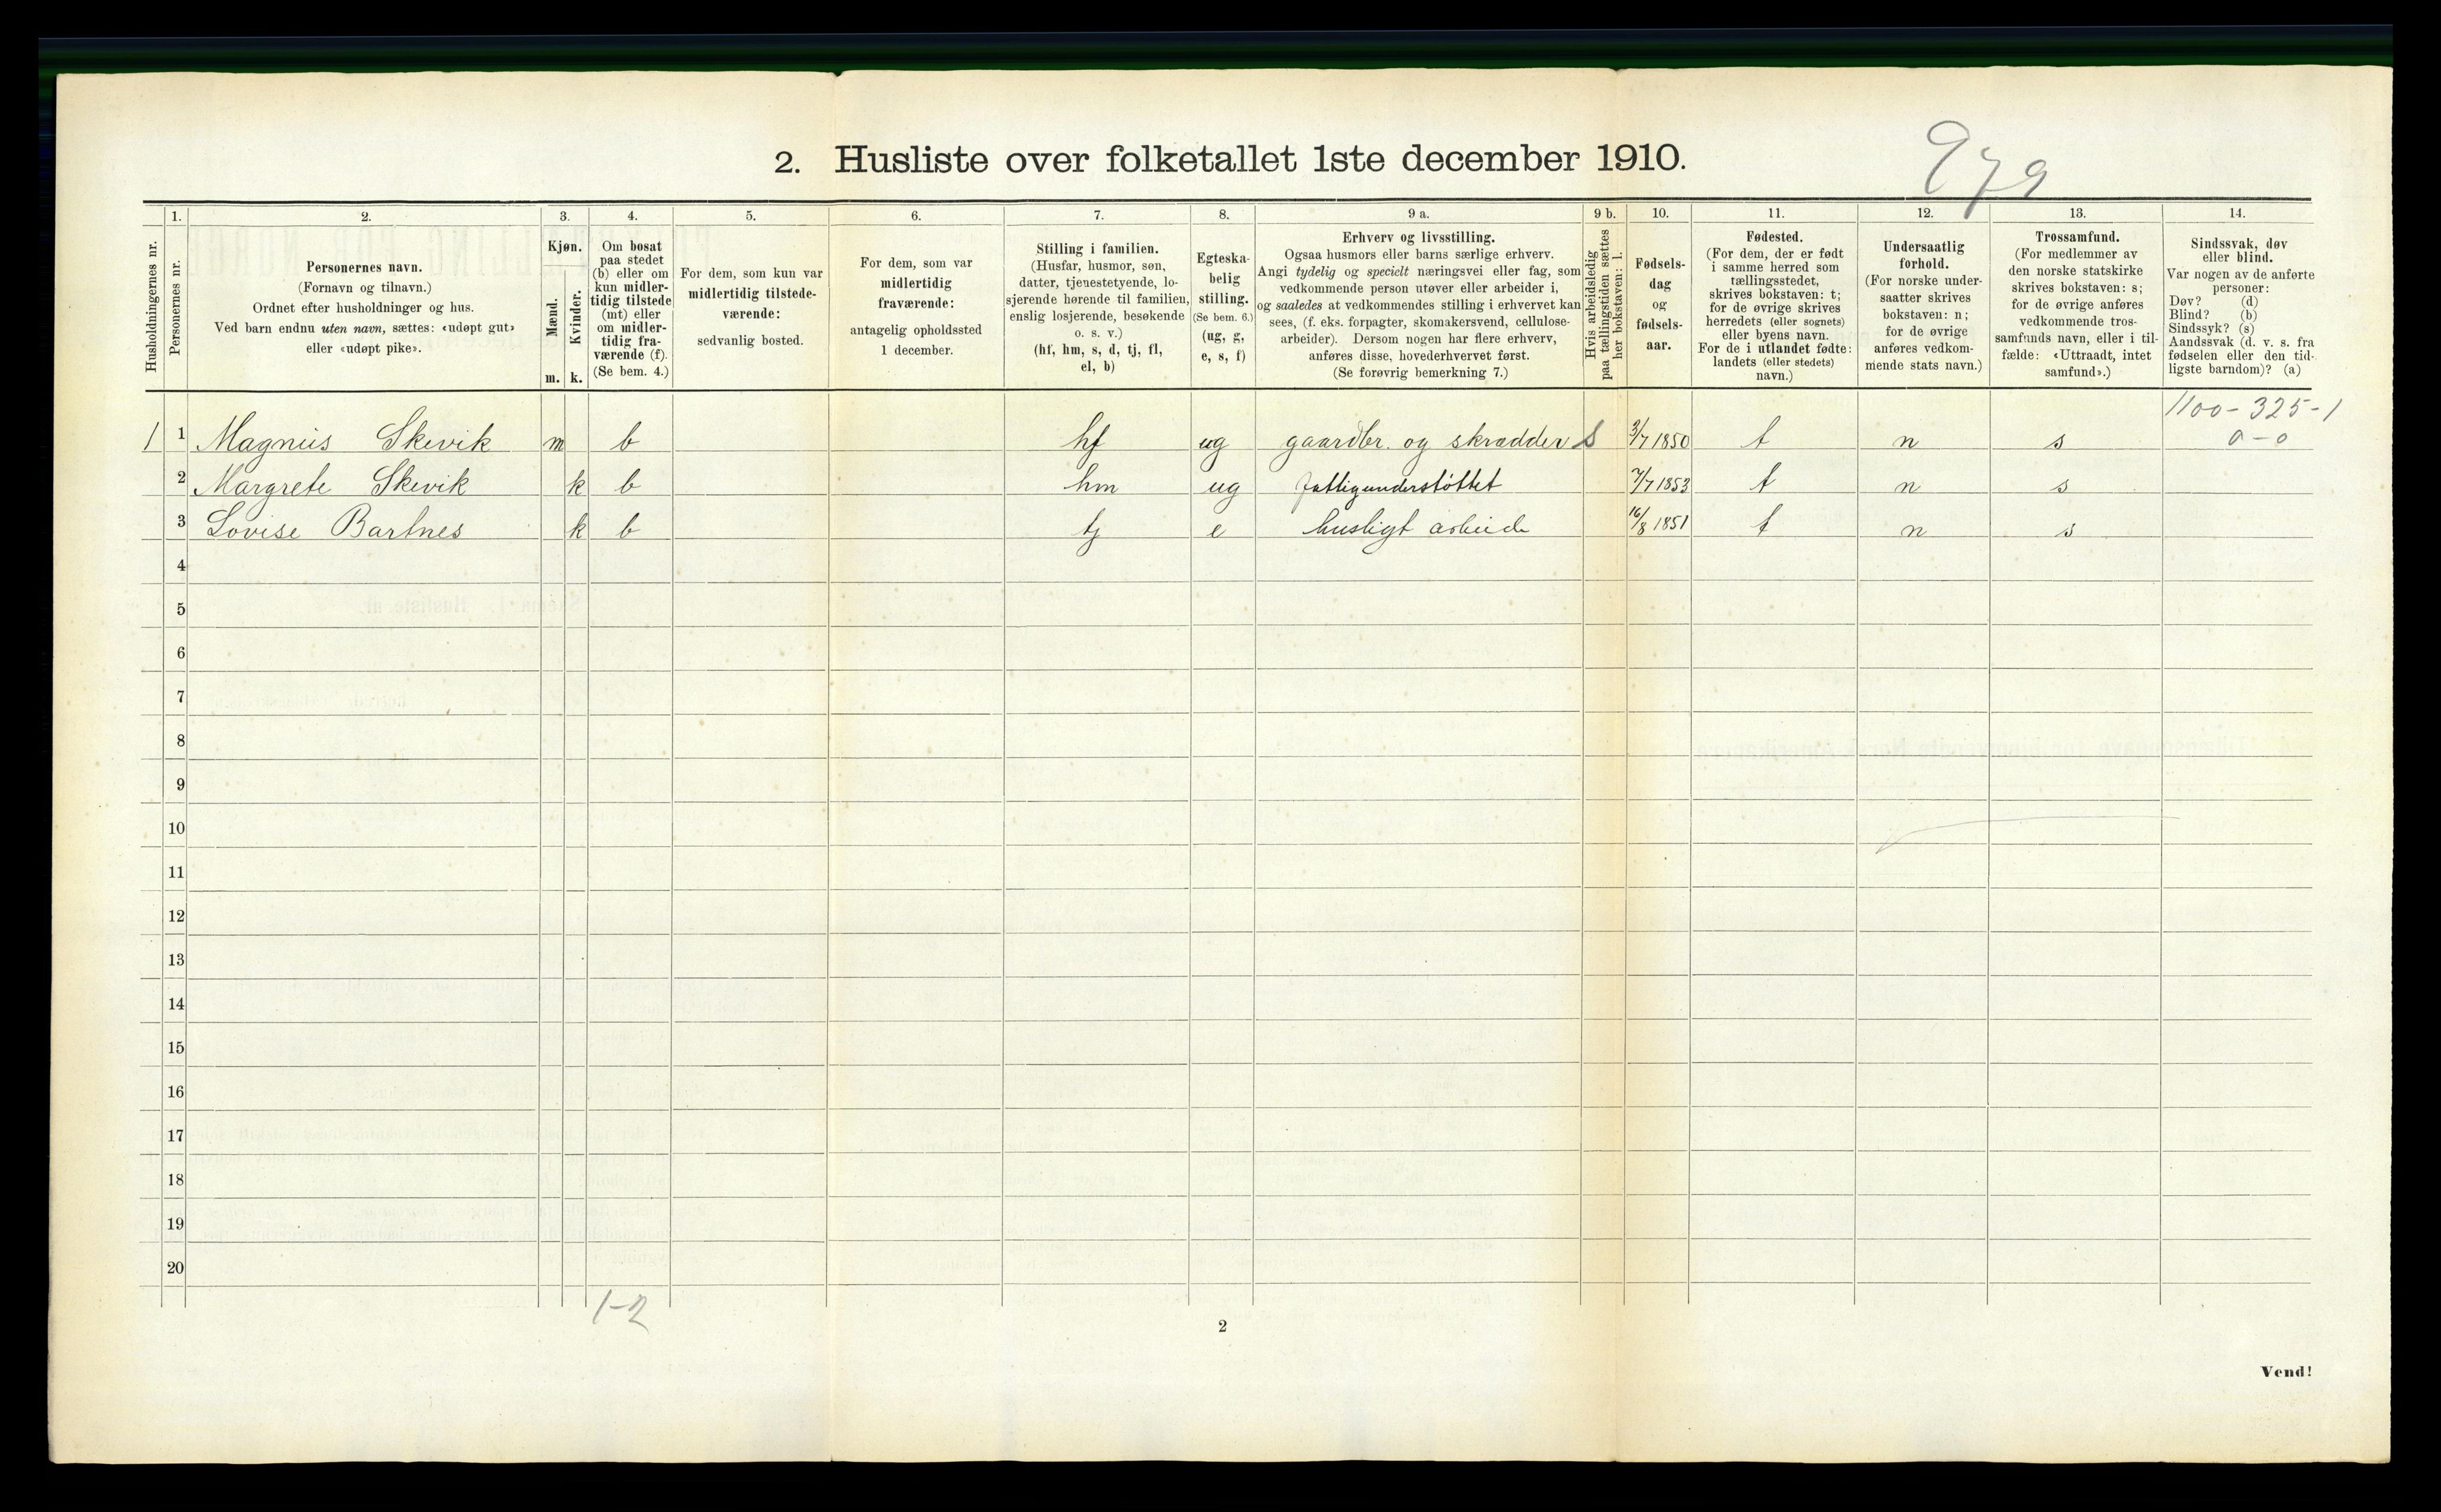 979
2. Husliste over folketallet 1ste december 1910.
1. 2. 3. 4. 5. 6. 7. 8. 9 a. 9 b. 10. 11. 12. 13. 14.
Husholdningernes nr.
Personernes nr.
Personernes navn.
(Fornavn og tilnavn.)
Ordnet efter husholdninger og hus.
Ved barn endnu uten navn, sættes: «udøpt gut»
eller «udøpt pike».
Kjøn.
Mænd.
m.
Kvinder.
k.
Om bosat
paa stedet
(b) eller om
kun midler-
tidig tilstede
(mt) eller
om midler-
tidig fra-
værende (f).
(Se bem. 4.)
For dem, som kun var
midlertidig tilstede-
værende:
sedvanlig bosted.
For dem, som var
midlertidig
fraværende:
antagelig opholdssted
1 december.
Stilling i familien.
(Husfar, husmor, søn,
datter, tjenestetyende, lo-
sjerende hørende til familien,
enslig losjerende, besøkende
o. s. v.)
(hf, hm, s, d, tj, fl,
el, b)
Egteska-
belig
stilling.
(Se bem. 6.)
(ug, g,
e, s, f)
Erhverv og livsstilling.
Ogsaa husmors eller barns særlige erhverv.
Angi tydelig og specielt næringsvei eller fag, som
vedkommende person utøver eller arbeider i,
og saaledes at vedkommendes stilling i erhvervet kan
sees, (f. eks. forpagter, skomakersvend, cellulose-
arbeider). Dersom nogen har flere erhverv,
anføres disse, hovederhvervet først.
(Se forøvrig bemerkning 7.)
Hvis arbeidsledig
paa tællingstiden sættes
her bokstaven: l.
Fødsels-
dag
og
fødsels-
aar.
Fødested.
(For dem, der er født
i samme herred som
tællingsstedet,
skrives bokstaven: t;
for de øvrige skrives
herredets (eller sognets)
eller byens navn.
For de i utlandet fødte:
landets (eller stedets)
navn.)
Undersaatlig
forhold.
(For norske under-
saatter skrives
bokstaven: n;
for de øvrige
anføres vedkom-
mende stats navn.)
Trossamfund.
(For medlemmer av
den norske statskirke
skrives bokstaven: s;
for de øvrige anføres
vedkommende tros-
samfunds navn, eller i til-
fælde: «Uttraadt, intet
samfund».)
Sindssvak, døv
eller blind.
Var nogen av de anførte
personer:
Døv? (d)
Blind? (b)
Sindssyk? (s)
Aandssvak (d. v. s. fra
fødselen eller den tid-
ligste barndom)? (a)
1100-325-1
0-0
1 1 Magnus Skevik m b hf ug gaardbr. og skrædder S 3/7 1850 t n s
2 Margrete Skevik k b hm ug fattigunderstøttet 7/7 1853 t n s
3 Lovise Bartnes k b tj e husligt arbeide 16/8 1851 t n s
4
5
6
7
8
9
10
11
12
13
14
15
16
17
18
19
20
1-2
2
Vend!